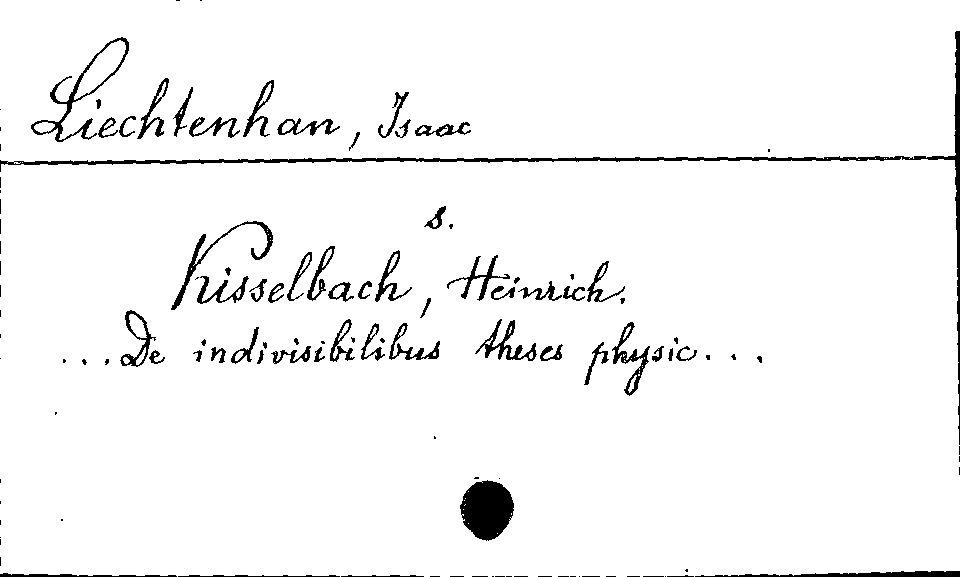 Liechtenhan, Isaac
s.
Kisselbach, Heinrich.
...De indivisibilibus theses physic...